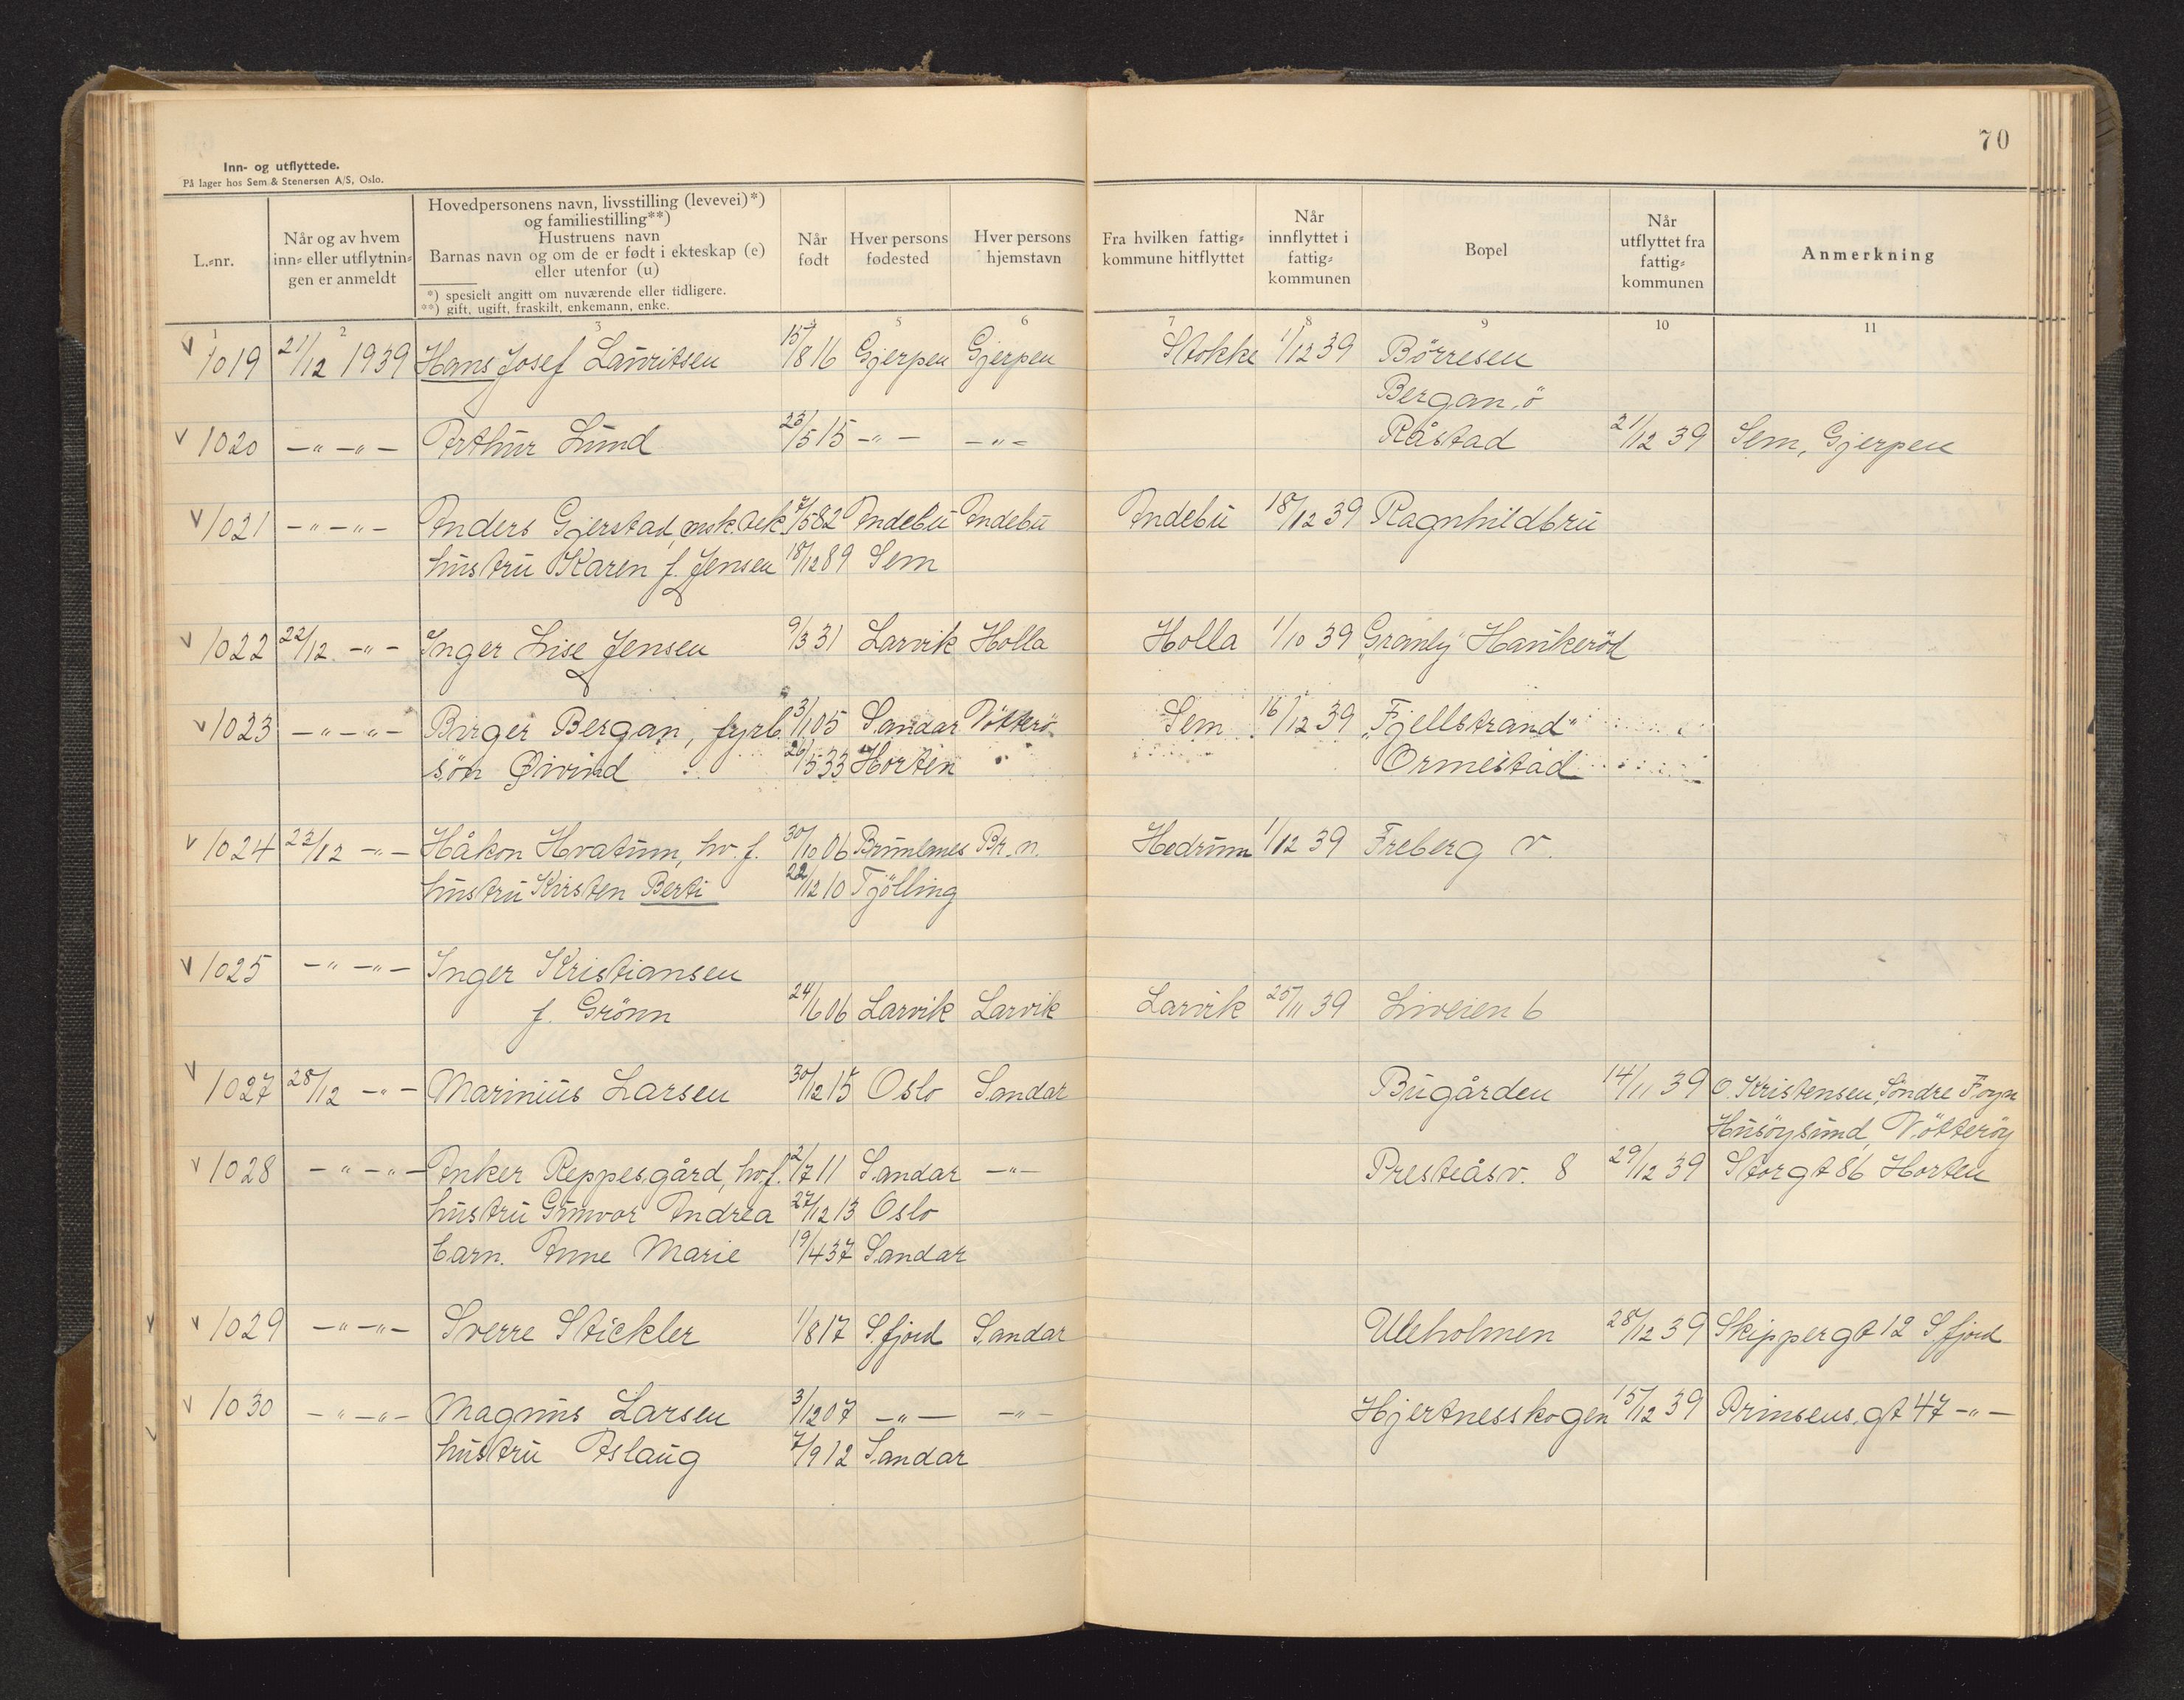 70
Inn- og utflyttede.
På lager hos Sem & Stenersen A/S, Oslo.
L.-nr.
Når og av hvem inn- eller utflytnin-gen er anmeldt
Hovedpersonens navn, livsstilling (levevei)*)
og familiestilling**)
Hustruens navn
Barnas navn og om de er født i ekteskap (e)
eller utenfor (u)
*) spesielt angitt om nuværende eller tidligere.
**) gift, ugift, fraskilt, enkemann, enke.
Når født
Hver persons fødested
Hver persons hjemstavn
Fra hvilken fattig-kommune hitflyttet
Når innflyttet i fattig-kommunen
Bopel
Når utflyttet fra fattig-kommunen
Anmerkning
1 2 3 4 5 6 7 8 9 10 11
v 1019 21/12 1939 Hans Josef Lauritsen 15/8 16 Gjerpen Gjerpen Stokke 1/12 39 Börresen
Bergan, ö
v 1020 -"- -"- Arthur Lund 23/5 15 -"- -"- Råstad 21/12 39 Sem, Gjerpen
v 1021 -"- -"- Anders Gjerstad, 7/5 82 Andebu Andebu Andebu 18/12 39 Ragnhildbru
hustru Karen f. Jensen 18/12 89 Sem
v 1022 22/12 -"- Inger Lise Jensen 9/3 31 Larvik Holla Holla 1/10 39 "Granly" Haukeröd
v 1023 -"- -"- Birger Bergan, fyrb. 3/1 05 Sandar Nötterö Sem 16/12 39 "Fjellstrand"
sön Øivind 26/5 33 Horten Ormestad
v 1024 22/12 -"- Håkon Hvatum, hv.f. 30/10 06 Brunlanes Br.n. Hedrum 1/12 39 Freberg v.
hustru Kirsten Berti 22/12 10 Tjölling
v 1025 -"- -"- Inger Kristiansen
f. Grönn 24/6 06 Larvik Larvik Larvik 25/11 39 Liveien 6
v 1027 28/12 -"- Marinius Larsen 30/12 15 Oslo Sandar Bugården 14/11 39 O. Kristensen, Söndre Foyn
Husöysund, Nötteröy
v 1028 -"- -"- Anker Reppesgård, hv.f. 2/7 11 Sandar -"- Presteåsv. 8 29/12 39 Storgt 86 Horten
hustru Gunvor Andrea 27/12 13 Oslo
barn. Anne Marie 19/4 37 Sandar
v 1029 -"- -"- Sverre Stickler 1/8 17 S.fjord Sandar Uleholmen 28/12 39 Skippergt 12 S.fjord
v 1030 -"- -"- Magnus Larsen 3/12 07 -"- -"- Hjertnesskogen 15/12 39 Prinsens.gt 47 -"-
hustru Aslaug 7/9 12 Sandar